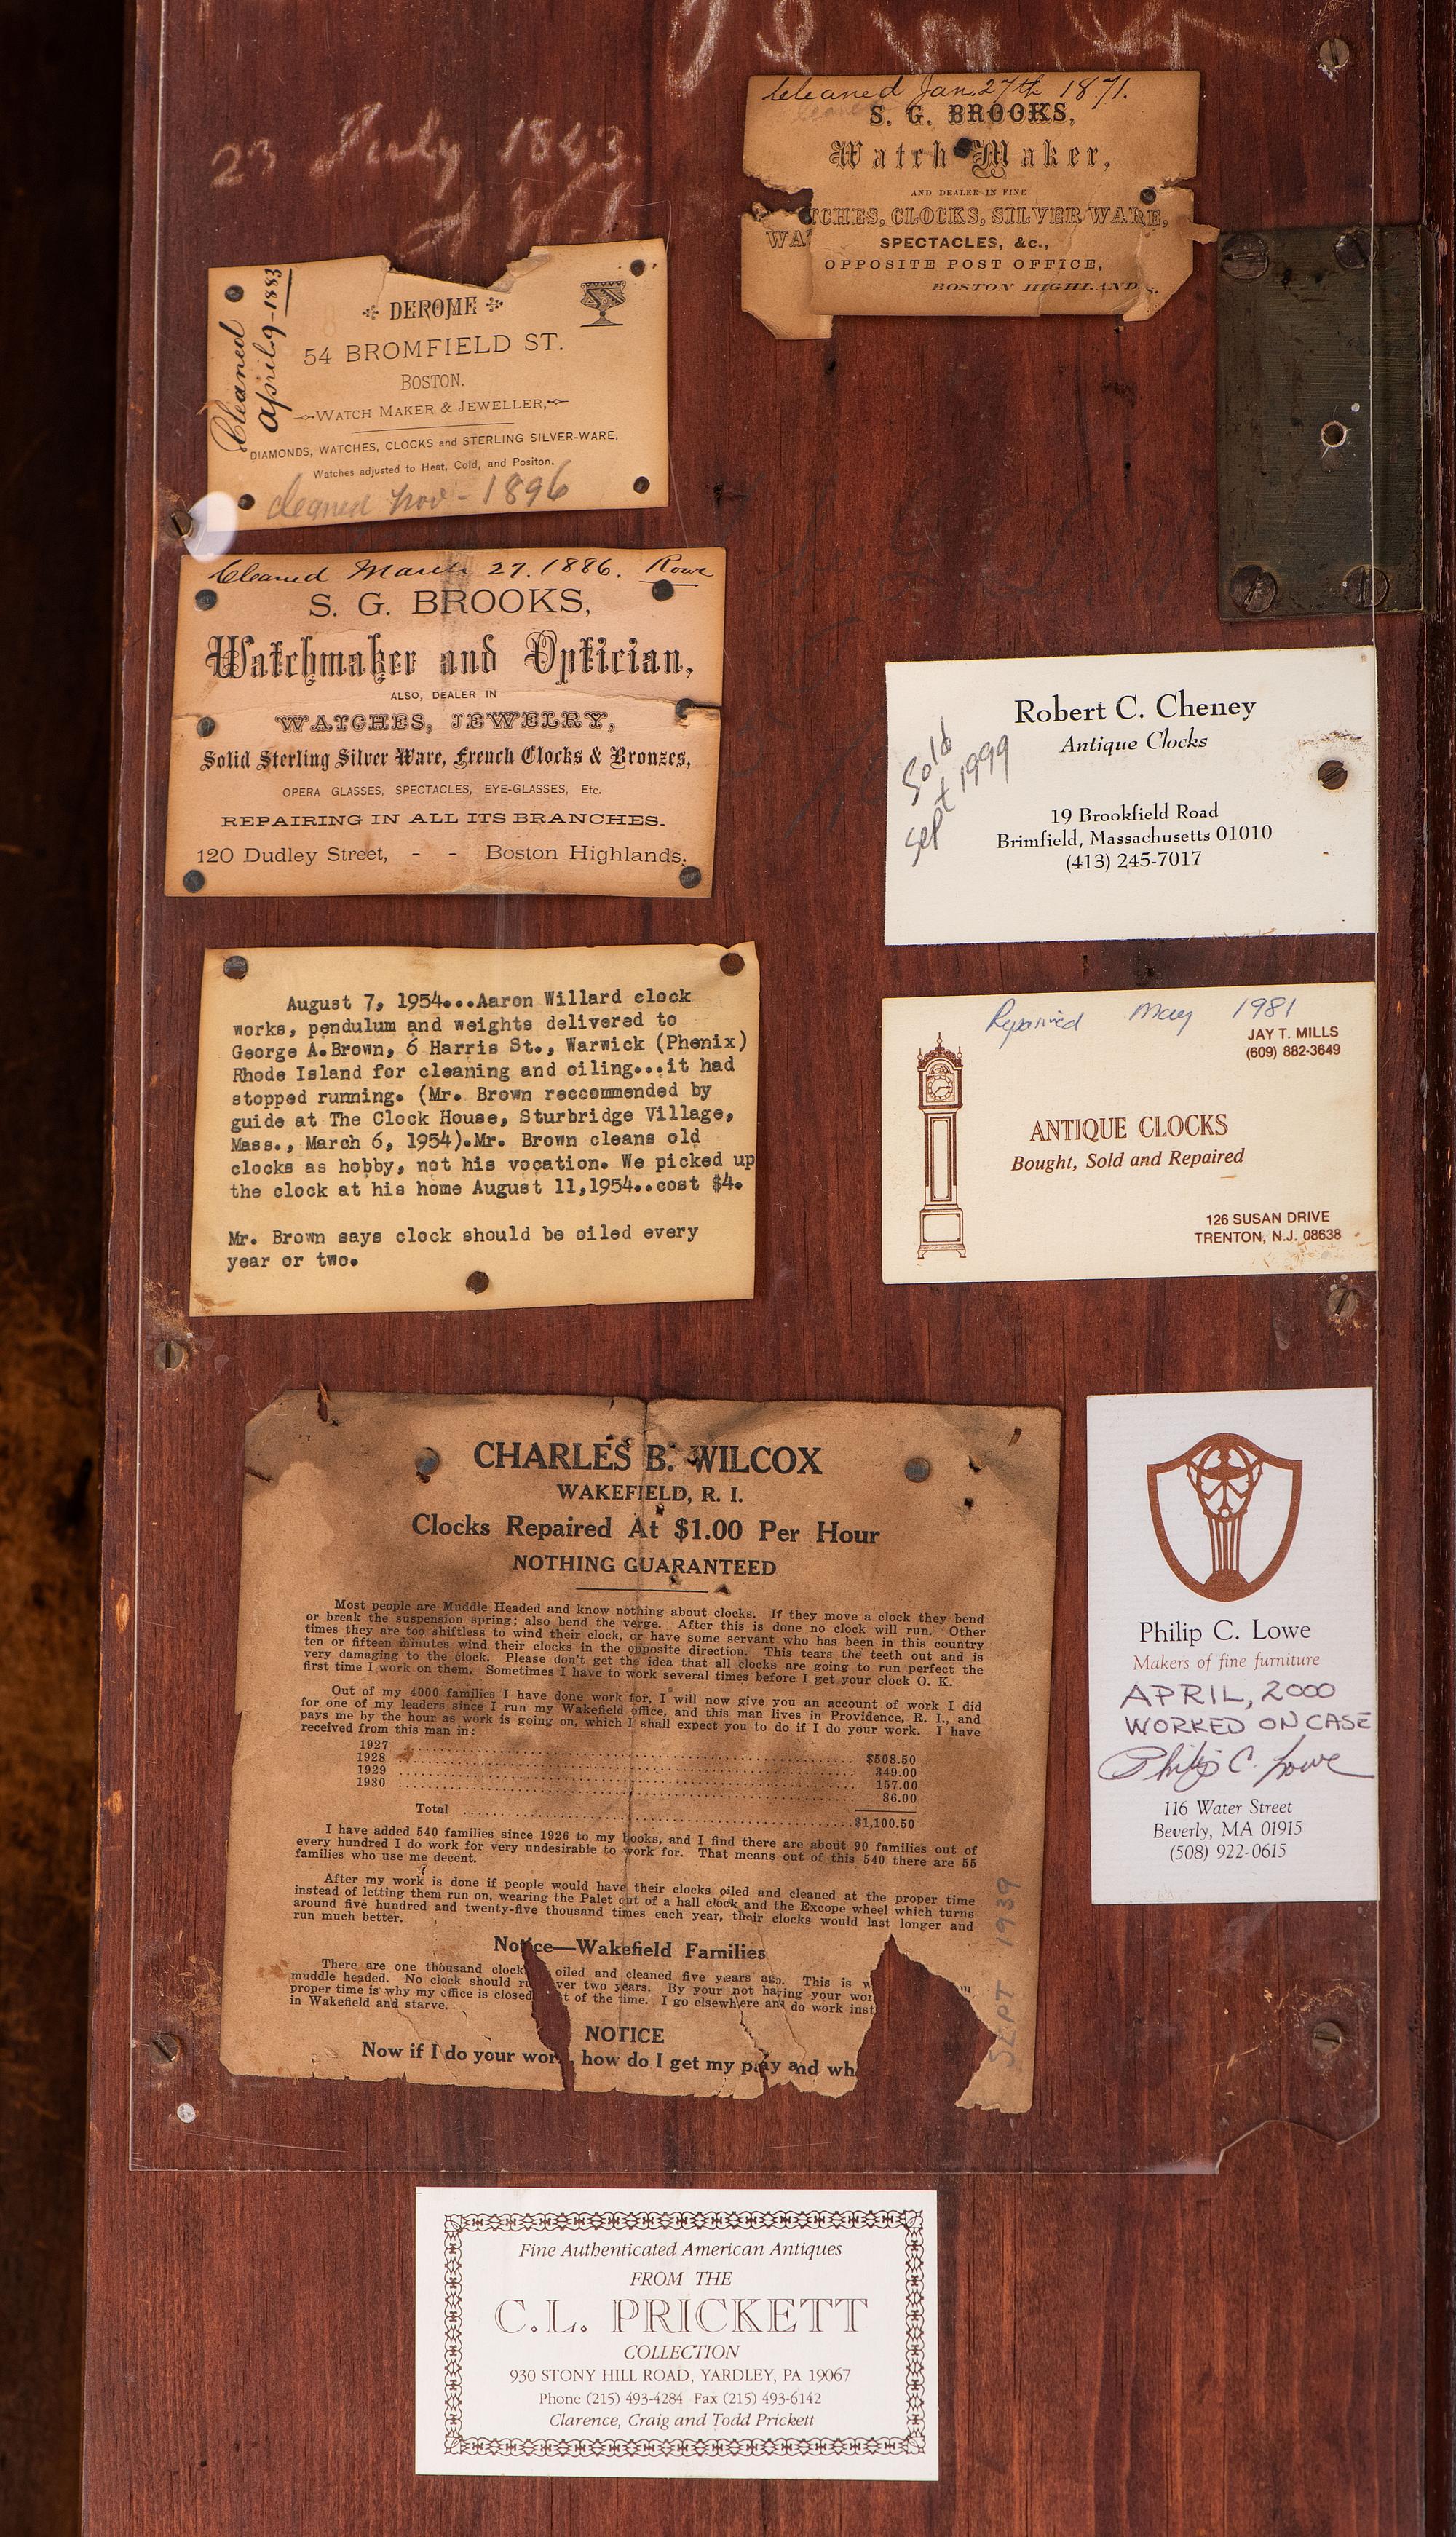 23 July 1843.
Cleaned Jan. 27th 1871.
S. G. BROOKS,
Watch Maker,
AND DEALER IN FINE
WATCHES, CLOCKS, SILVER WARE,
SPECTACLES, &c.,
OPPOSITE POST OFFICE,
BOSTON HIGHLANDS.
Cleaned
April 9-1883
DEROME
54 BROMFIELD ST.
BOSTON.
WATCH MAKER & JEWELLER,
DIAMONDS, WATCHES, CLOCKS and STERLING SILVER-WARE,
Watches adjusted to Heat, Cold, and Positon.
cleaned nov - 1896
Cleaned March 27. 1886. Rowe
S. G. BROOKS,
Watchmaker and Optician,
ALSO, DEALER IN
WATCHES, JEWELRY,
Solid Sterling Silver Ware, French Clocks & Bronzes,
OPERA GLASSES, SPECTACLES, EYE-GLASSES, Etc.
REPAIRING IN ALL ITS BRANCHES.
120 Dudley Street, - - Boston Highlands.
Robert C. Cheney
Antique Clocks
Sold
Sept 1999
19 Brookfield Road
Brimfield, Massachusetts 01010
(413) 245-7017
August 7, 1954...Aaron Willard clock
works, pendulum and weights delivered to
George A.Brown, 6 Harris St., Warwick (Phenix)
Rhode Island for cleaning and oiling...it had
stopped running. (Mr. Brown reccommended by
guide at The Clock House, Sturbridge Village,
Mass., March 6, 1954).Mr. Brown cleans old
clocks as hobby, not his vocation. We picked up
the clock at his home August 11,1954..cost $4.
Mr. Brown says clock should be oiled every
year or two.
Repaired May 1981
JAY T. MILLS
(609) 882-3649
ANTIQUE CLOCKS
Bought, Sold and Repaired
126 SUSAN DRIVE
TRENTON, N.J. 08638
CHARLES B. WILCOX
WAKEFIELD, R. I.
Clocks Repaired At $1.00 Per Hour
NOTHING GUARANTEED
Most people are Muddle Headed and know nothing about clocks. If they move a clock they bend
or break the suspension spring; also bend the verge. After this is done no clock will run. Other
times they are too shiftless to wind their clock, or have some servant who has been in this country
ten or fifteen minutes wind their clocks in the opposite direction. This tears the teeth out and is
very damaging to the clock. Please don't get the idea that all clocks are going to run perfect the
first time I work on them. Sometimes I have to work several times before I get your clock O. K.
Out of my 4000 families I have done work for, I will now give you an account of work I did
for one of my leaders since I run my Wakefield office, and this man lives in Providence, R. I., and
pays me by the hour as work is going on, which I shall expect you to do if I do your work. I have
received from this man in:
1927 $508.50
1928 349.00
1929 157.00
1930 86.00
Total $1,100.50
I have added 540 families since 1926 to my books, and I find there are about 90 families out of
every hundred I do work for very undesirable to work for. That means out of this 540 there are 55
families who use me decent.
After my work is done if people would have their clocks oiled and cleaned at the proper time
instead of letting them run on, wearing the Palet out of a hall clock and the Excope wheel which turns
around five hundred and twenty-five thousand times each year, their clocks would last longer and
run much better.
Notice—Wakefield Families
There are one thousand clock oiled and cleaned five years ago. This is
muddle headed. No clock should over two years. By your not having your
proper time is why my office is closed of the time. I go elsewhere and do work
in Wakefield and starve.
NOTICE
Now if I do your work, how do I get my pay and
SEPT 1939
Philip C. Lowe
Makers of fine furniture
APRIL, 2000
WORKED ON CASE
Philip C. Lowe
116 Water Street
Beverly, MA 01915
(508) 922-0615
Fine Authenticated American Antiques
FROM THE
C.L. PRICKETT
COLLECTION
930 STONY HILL ROAD, YARDLEY, PA 19067
Phone (215) 493-4284 Fax (215) 493-6142
Clarence, Craig and Todd Prickett